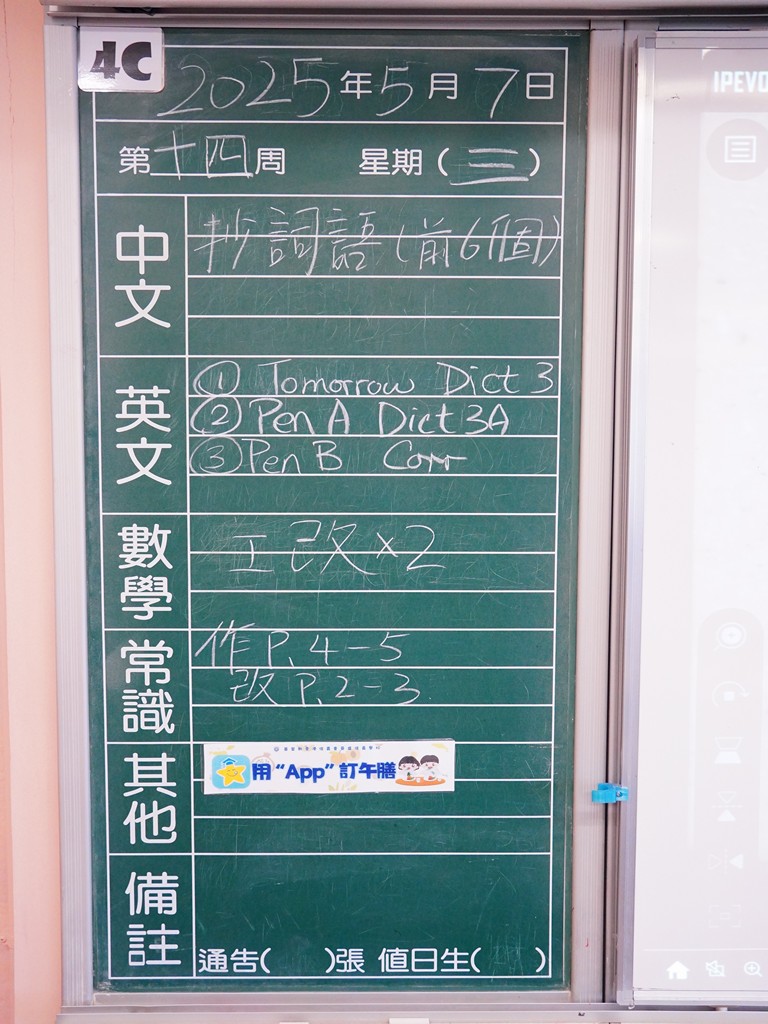 4C
2025年5月7日
第十四周 星期(三)
中文
抄詞語(前6個)
英文
① Tomorrow Dict 3
② Pen A Dict 3A
③ Pen B Corr
數學
工改×2
常識
作 P.4-5
改 P.2-3
其他
用“App”訂午膳
備註
通告( )張 值日生( )
IPEVO